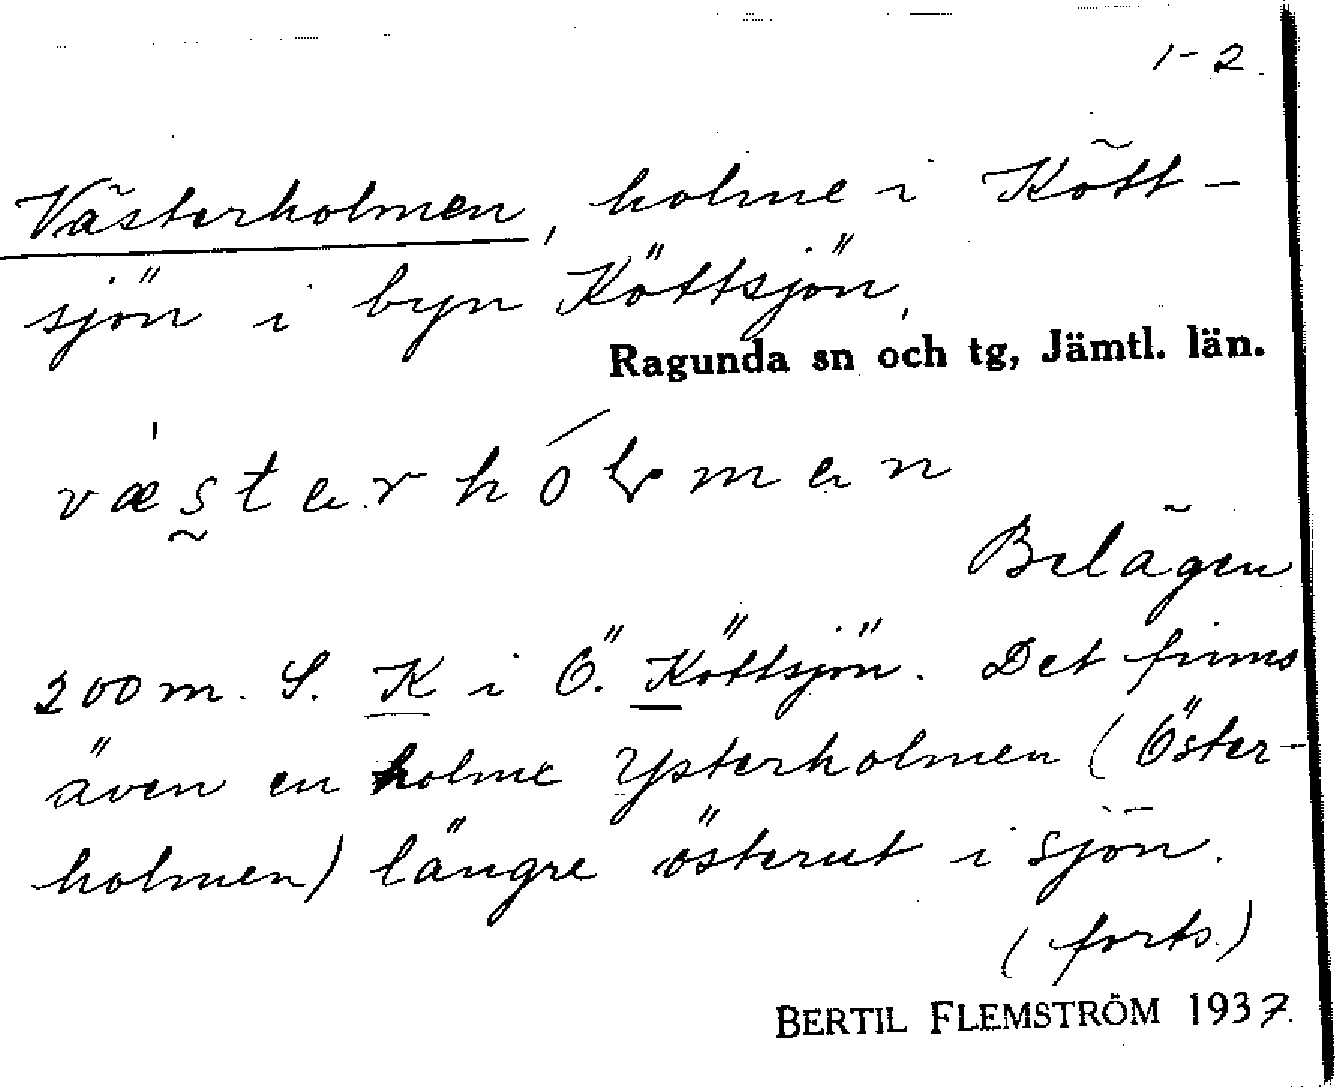 1-2.
Västerholmen, holme i Kött-
sjön i byn Köttsjön,
Ragunda sn och tg, Jämtl. län.
væsterhólmen
Belägen
200 m. S. K i Ö. Köttsjön. Det finns
även en holme Ysterholmen (Öster-
holmen) längre österut i sjön.
(forts.)
BERTIL FLEMSTRÖM 1937.